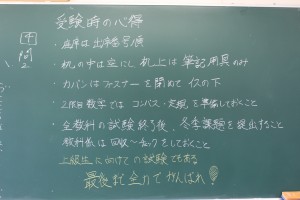 受験時の心得
中
問
2
・座席は出席番号順
・机の中は空にし 机上は筆記用具のみ
・カバンはファスナーを閉めて イスの下
・2限目数学では コンパス・定規を準備しておくこと
・全教科の試験終了後、冬季課題を提出すること
教科係は回収〜チェックをしておくこと
上級生に向けての試験でもある
最後まで全力でがんばれ!